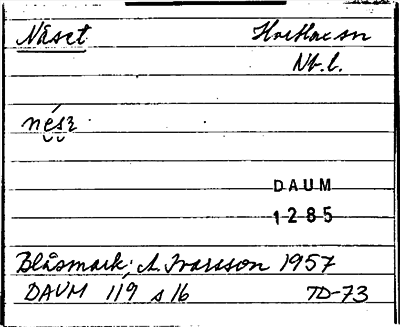 Näset Hortlax sn
Nb. l.
nésʒ
DAUM
1285
Blåsmark; A. Ivarsson 1957
DAUM 119 s 16 TD-73